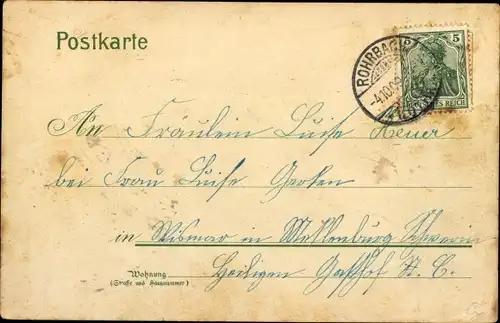 Postkarte
5
ROHRBACH
-4.10.09
ES REICH
An Fräulein Luise Heuer
bei Frau Luise Gerken
in Wismar in Mecklenburg Schwerin
Wohnung
(Straße und Hausnummer)
Heiligen Gasthof N. C.